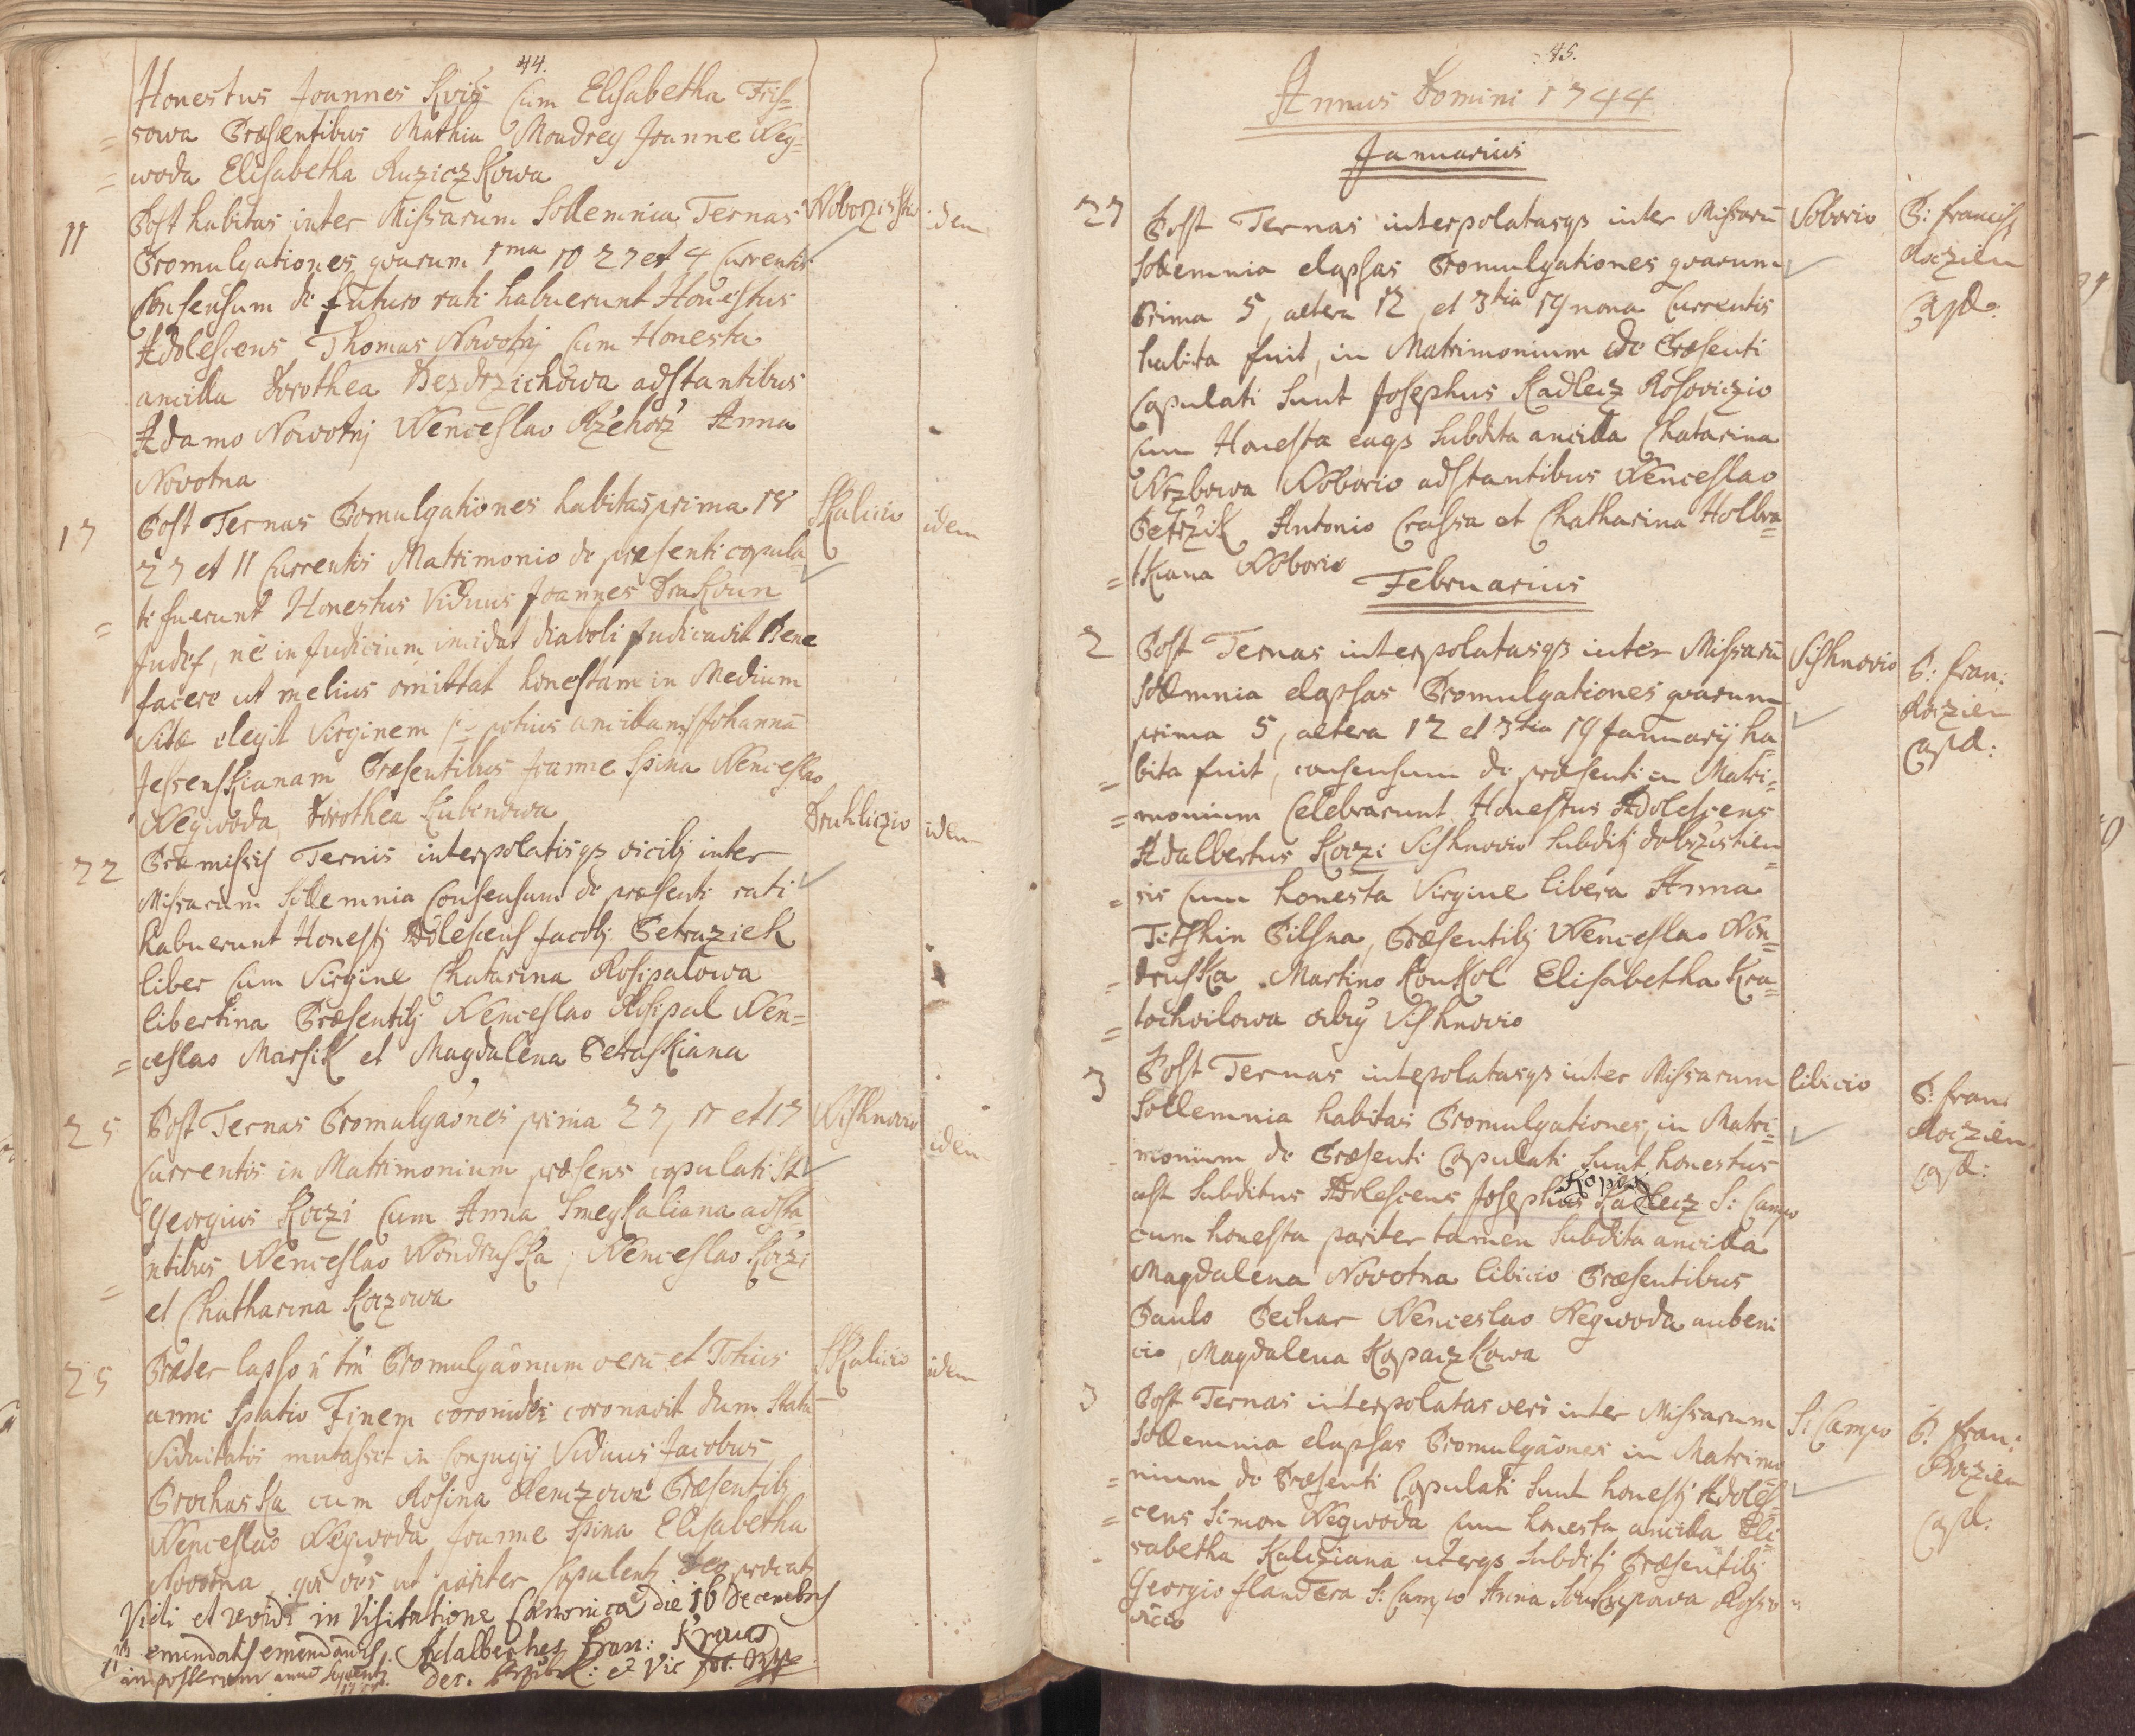 44.
Honestus Joannes Kviz Cum Elisabetha Fris=
=sowa Præsentibus Mathia Moudrey Joanne Neg=
=woda Elisabetha RuziczKowa
11 Post habitas inter Missarum Sollemnia Ternas
Promulgationes quarum 1ma 10 27 et 4 Currentis
Consensum de futuro rati habuerunt Honestus
Adolescens Thomas Nowotnj Cum Honesta
ancilla Dorothea Bezdrzichowa adstantibus
Adamo Nowotnj Wenceslao Rzehorz Anna
Novotna
idem
17 Post Ternas Promulgationes habitas prima 18
27 et 11 Currentis Matrimonio de præsenti copula
=ti fuerunt Honestus Viduus Joannes DraKoun
Judex, ne in Judicium incidat diaboli Judicavit Bene
facere ut melius omittat honestam in Medium
Vitæ elegit Virginem potius ancillam Johannã
JessensKianam Præsentibus Joanne Spina Wenceslao
Negwoda, Dorothea Kubinowa
SKalicio
idem
22 Præmissis Ternis interpolatisqs vicibj inter
Missarum Sollemnia Consensum de præsenti rati
habuerunt Honestj Adolescens Jacobj Petraziek
liber Cum Virgine Chatarina Rosipalowa
libertina Præsentibj Wenceslao Rosipal Wen=
=ceslao MarsiK et Magdalena PetrasKiana
Druhliczio
idem
25 Post Ternas Promulgaônes prima 27, 11 et 17
Currentis in Matrimonium præsens copulati St
Georgius Koczi Cum Anna SmeyKaliana adsta
=ntibus Wenceslao WondrusKa, Wenceslao Koczi
et Chatharina Koczowa
Wishnovio
idem
25 Præter lapso Promulgaônum verũ et Totius
anni Spatio Finem coronidis coronavit dum Statũ
Viduitatis mutasset in Conjugij Viduus Jacobus
ProchasKa cum Rosina Præsentibj
Wenceslao Negwoda, Joanne Spina Elisabetha
Novotna, qui vos ut pariter Copulent Deo
SKalicio
idem
Vidi et in Visitatione Canonica die 16 Decembris
emendatis emendandis Adalbertus Fran: Kraus
imposterum anno sequenti. Dec. et Vic for.
45.
Annus Domini 1744
Januarius
27 Post Ternas interpolatasqs inter Missarũ
Sollemnia elapsas Promulgationes quarum
Prima 5, altera 12, et 3tia 19 nona Currentis
habita fuit, in Matrimonium de Præsenti
Copulati Sunt Josephus Kadlecz Rosoviczio
cum Honesta eaqs Subdita ancilla Chatarina
Wrzbowa Woborio adstantibus Wenceslao
PetrziK Antonio Crassa et Chatharina Holbra=
=tKiana Woborio
Voborio
P: Francisq
Koczien
Cap:
Februarius
2 Post Ternas interpolatasqs inter Missarũ
Sollemnia elapsas Promulgationes quarum
prima 5, altera 12 et 3tia 19 Januarij ha
=bita fuit, consensum de præsenti in Matri=
=monium Celebrarunt Honestus Adolescens
Adalbertus Koczi Vishnovio Subditj dobrzistien
=sis Cum honesta Virgine libera Anna
Titshin Pilsna, Præsentibj Wenceslao Won=
=drusKa Martino KouKol Elisabetha Kra=
=tochvilowa Vishnovio
Vishnovio
P: Fran:
Koczien
Cap:
3 Post Ternas intepolatasqs inter Missarum
Sollemnia habitas Promulgationes, in Matri=
monium de Præsenti Copulati Sunt honestus
ast Subditus Adolescens Josephus Kadlecz S: Campo
Kopecz
cum honesta pariter tamen Subdita ancilla
Magdalena Novotna libicio Præsentibus
Paulo Pechar Wenceslao Negwoda aubeni
cio, Magdalena KopaczKowa
libicio
P: Fran:
Koczien
Cap:
3 Post Ternas interpolatas vero inter Missarum
Sollemnia elapsas Promulgaônes in Matrimo
=nium de Præsenti Copulati Sunt honestj Adoles
=cens Simon Negwoda cum honesta ancilla Eli=
sabetha Kaliziana uterqs Subditj Præsentibj
Georgio Flandera S: Campo Anna SouKupowa Rosso=
vicio
S: Campo
P: Fran:
Koczien
Cap: